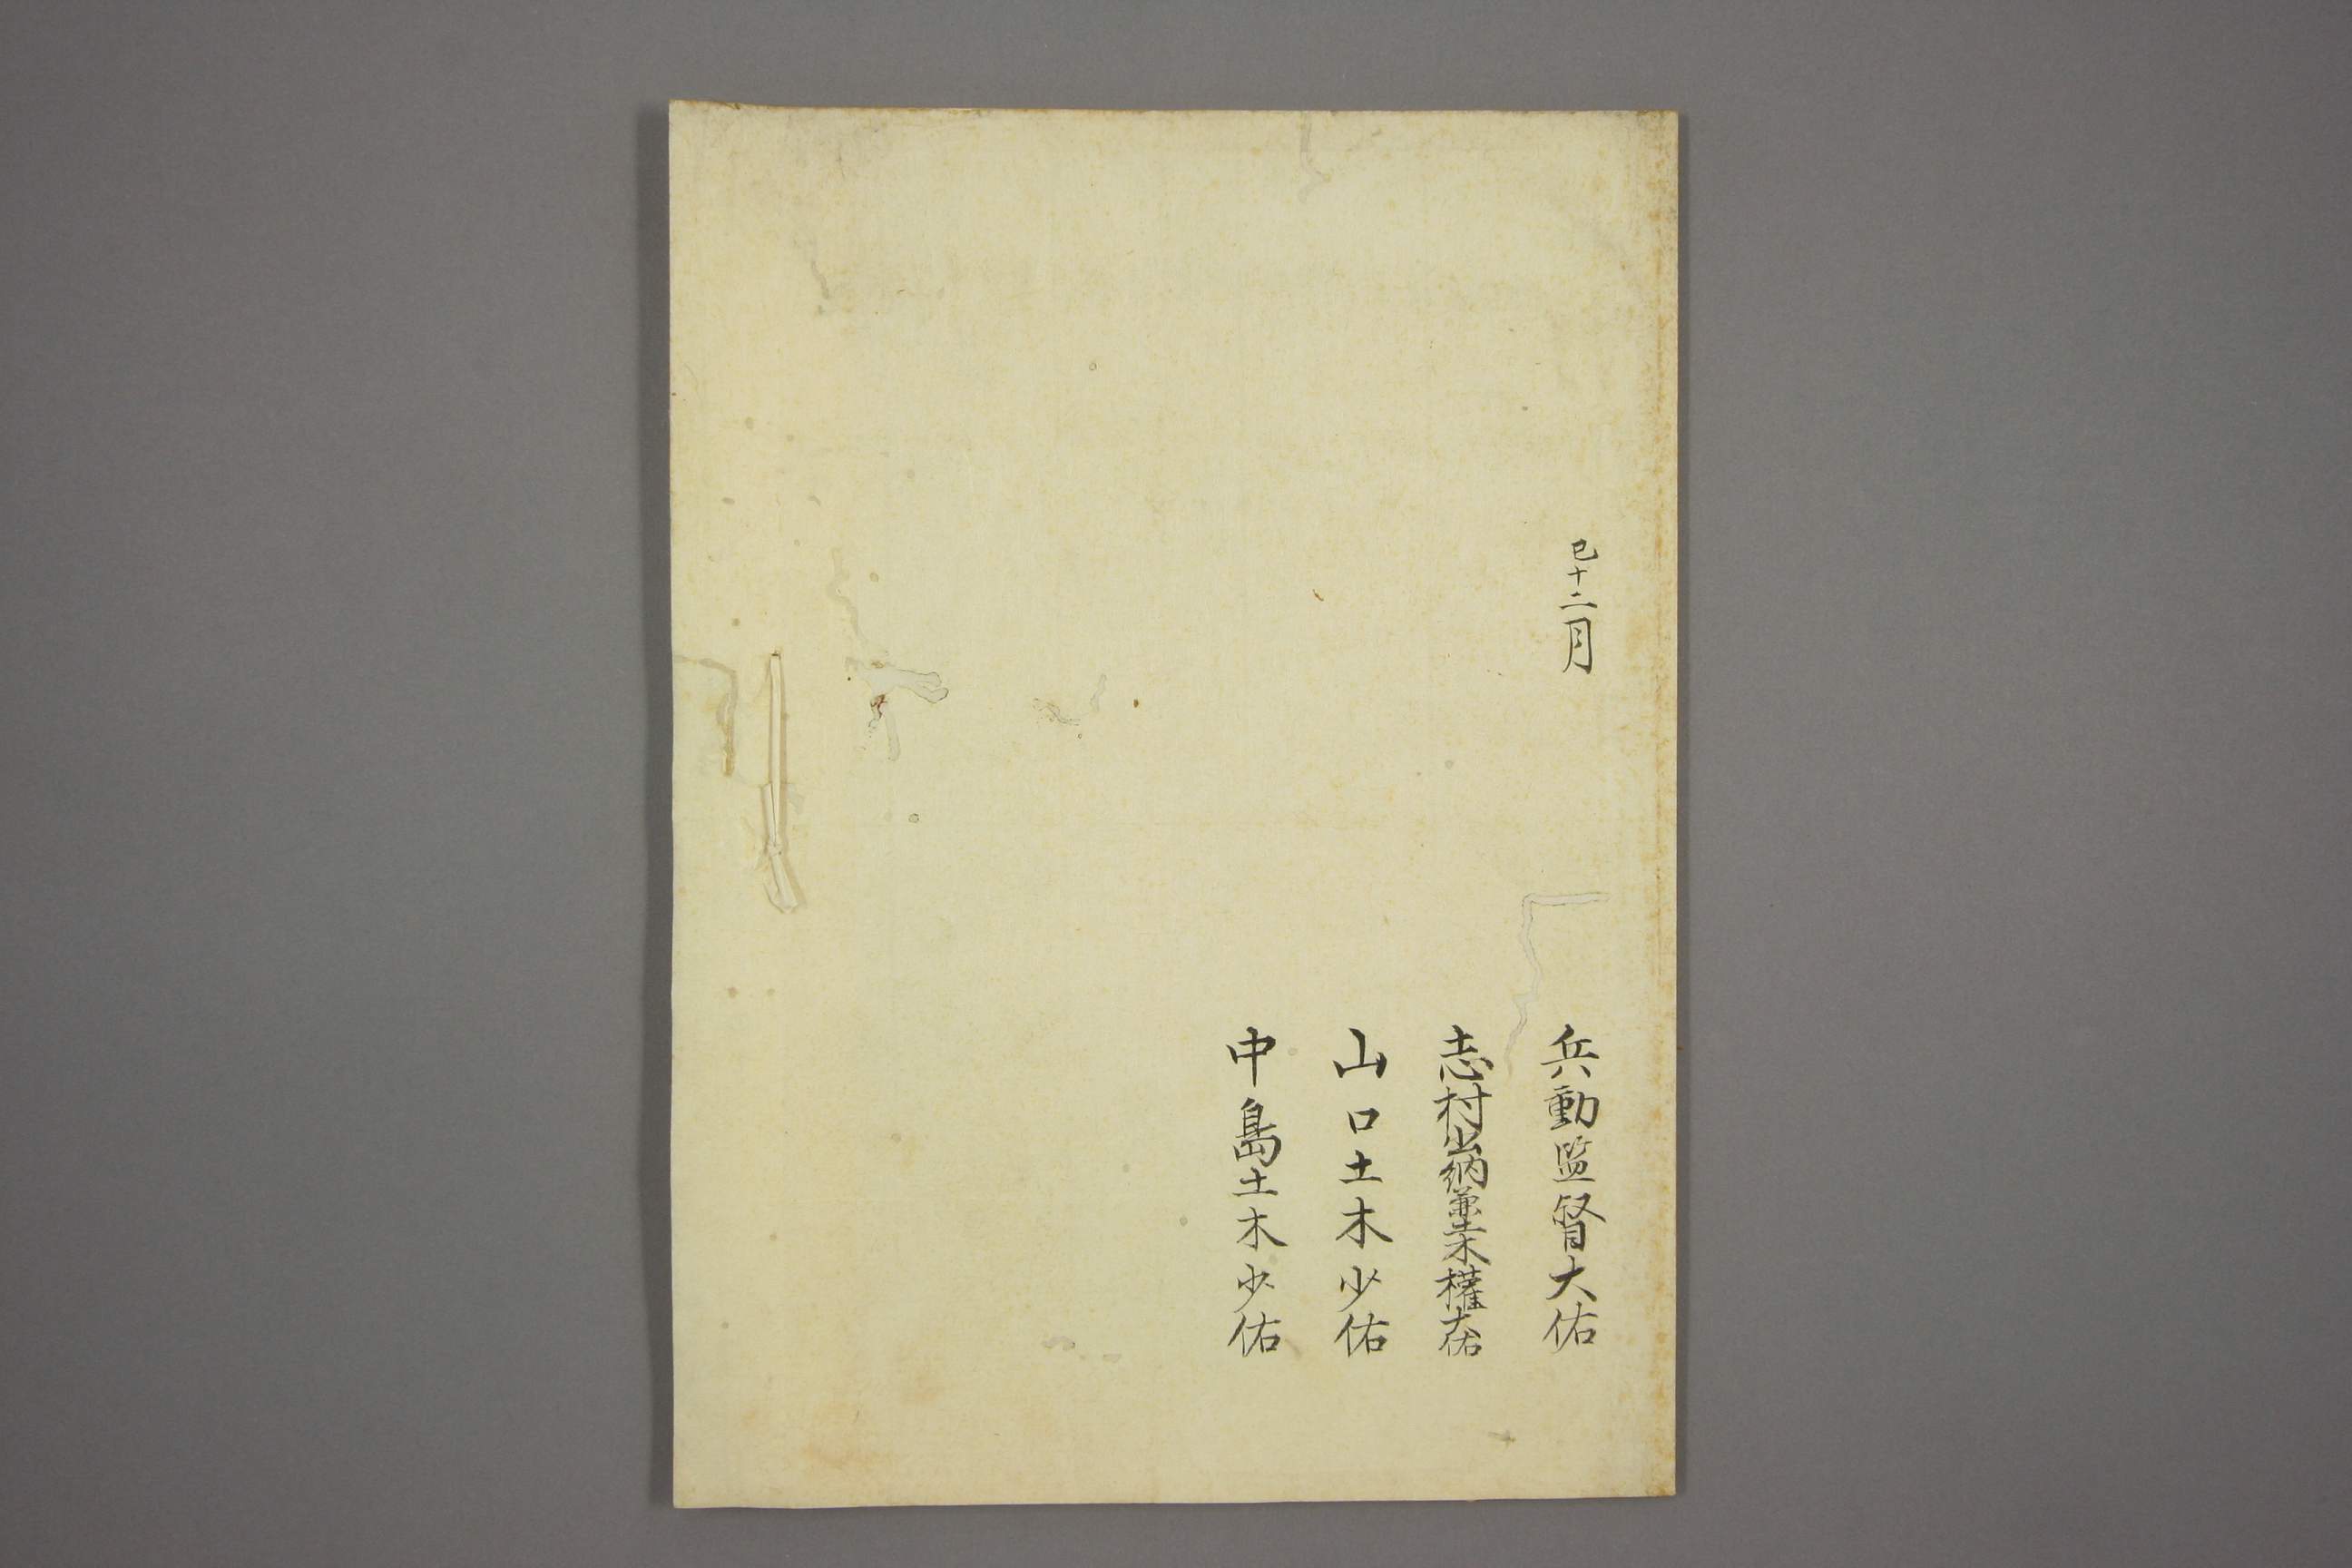 巳十二月
兵動監督大佑
志村出納兼土木權大佑
山口土木少佑
中島土木少佑